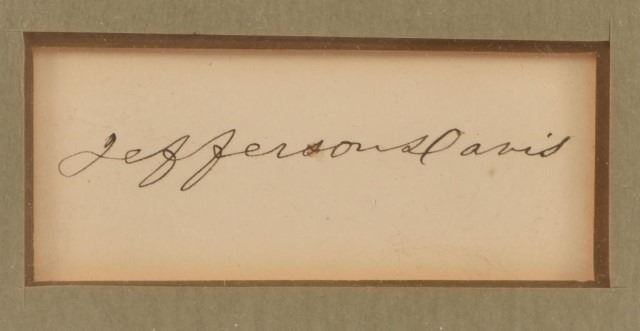 Jefferson Davis